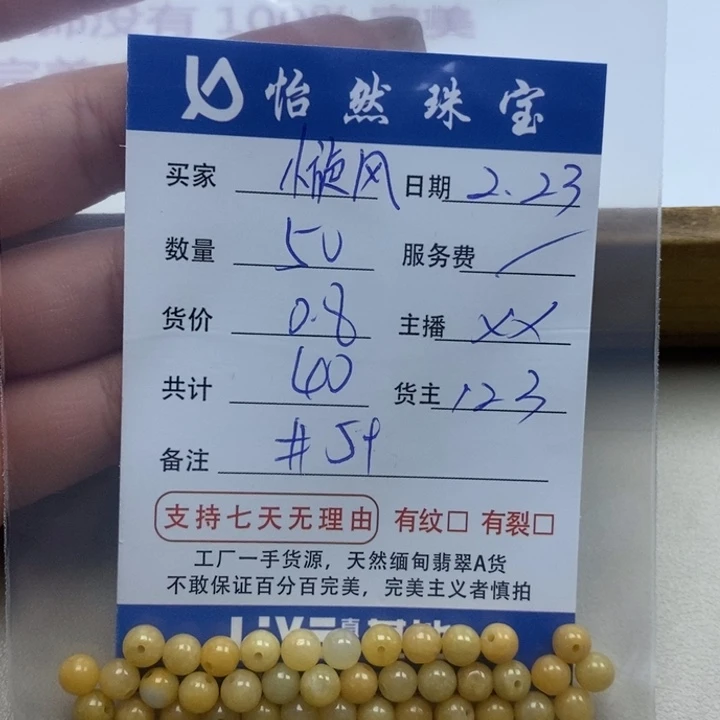 怡然珠宝
买家 旋风 日期 2.23
数量 50 服务费 /
货价 0.8 主播 XX
共计 40 货主 123
备注 #59
支持七天无理由 有纹□ 有裂□
工厂一手货源，天然缅甸翡翠A货
不敢保证百分百完美，完美主义者慎拍